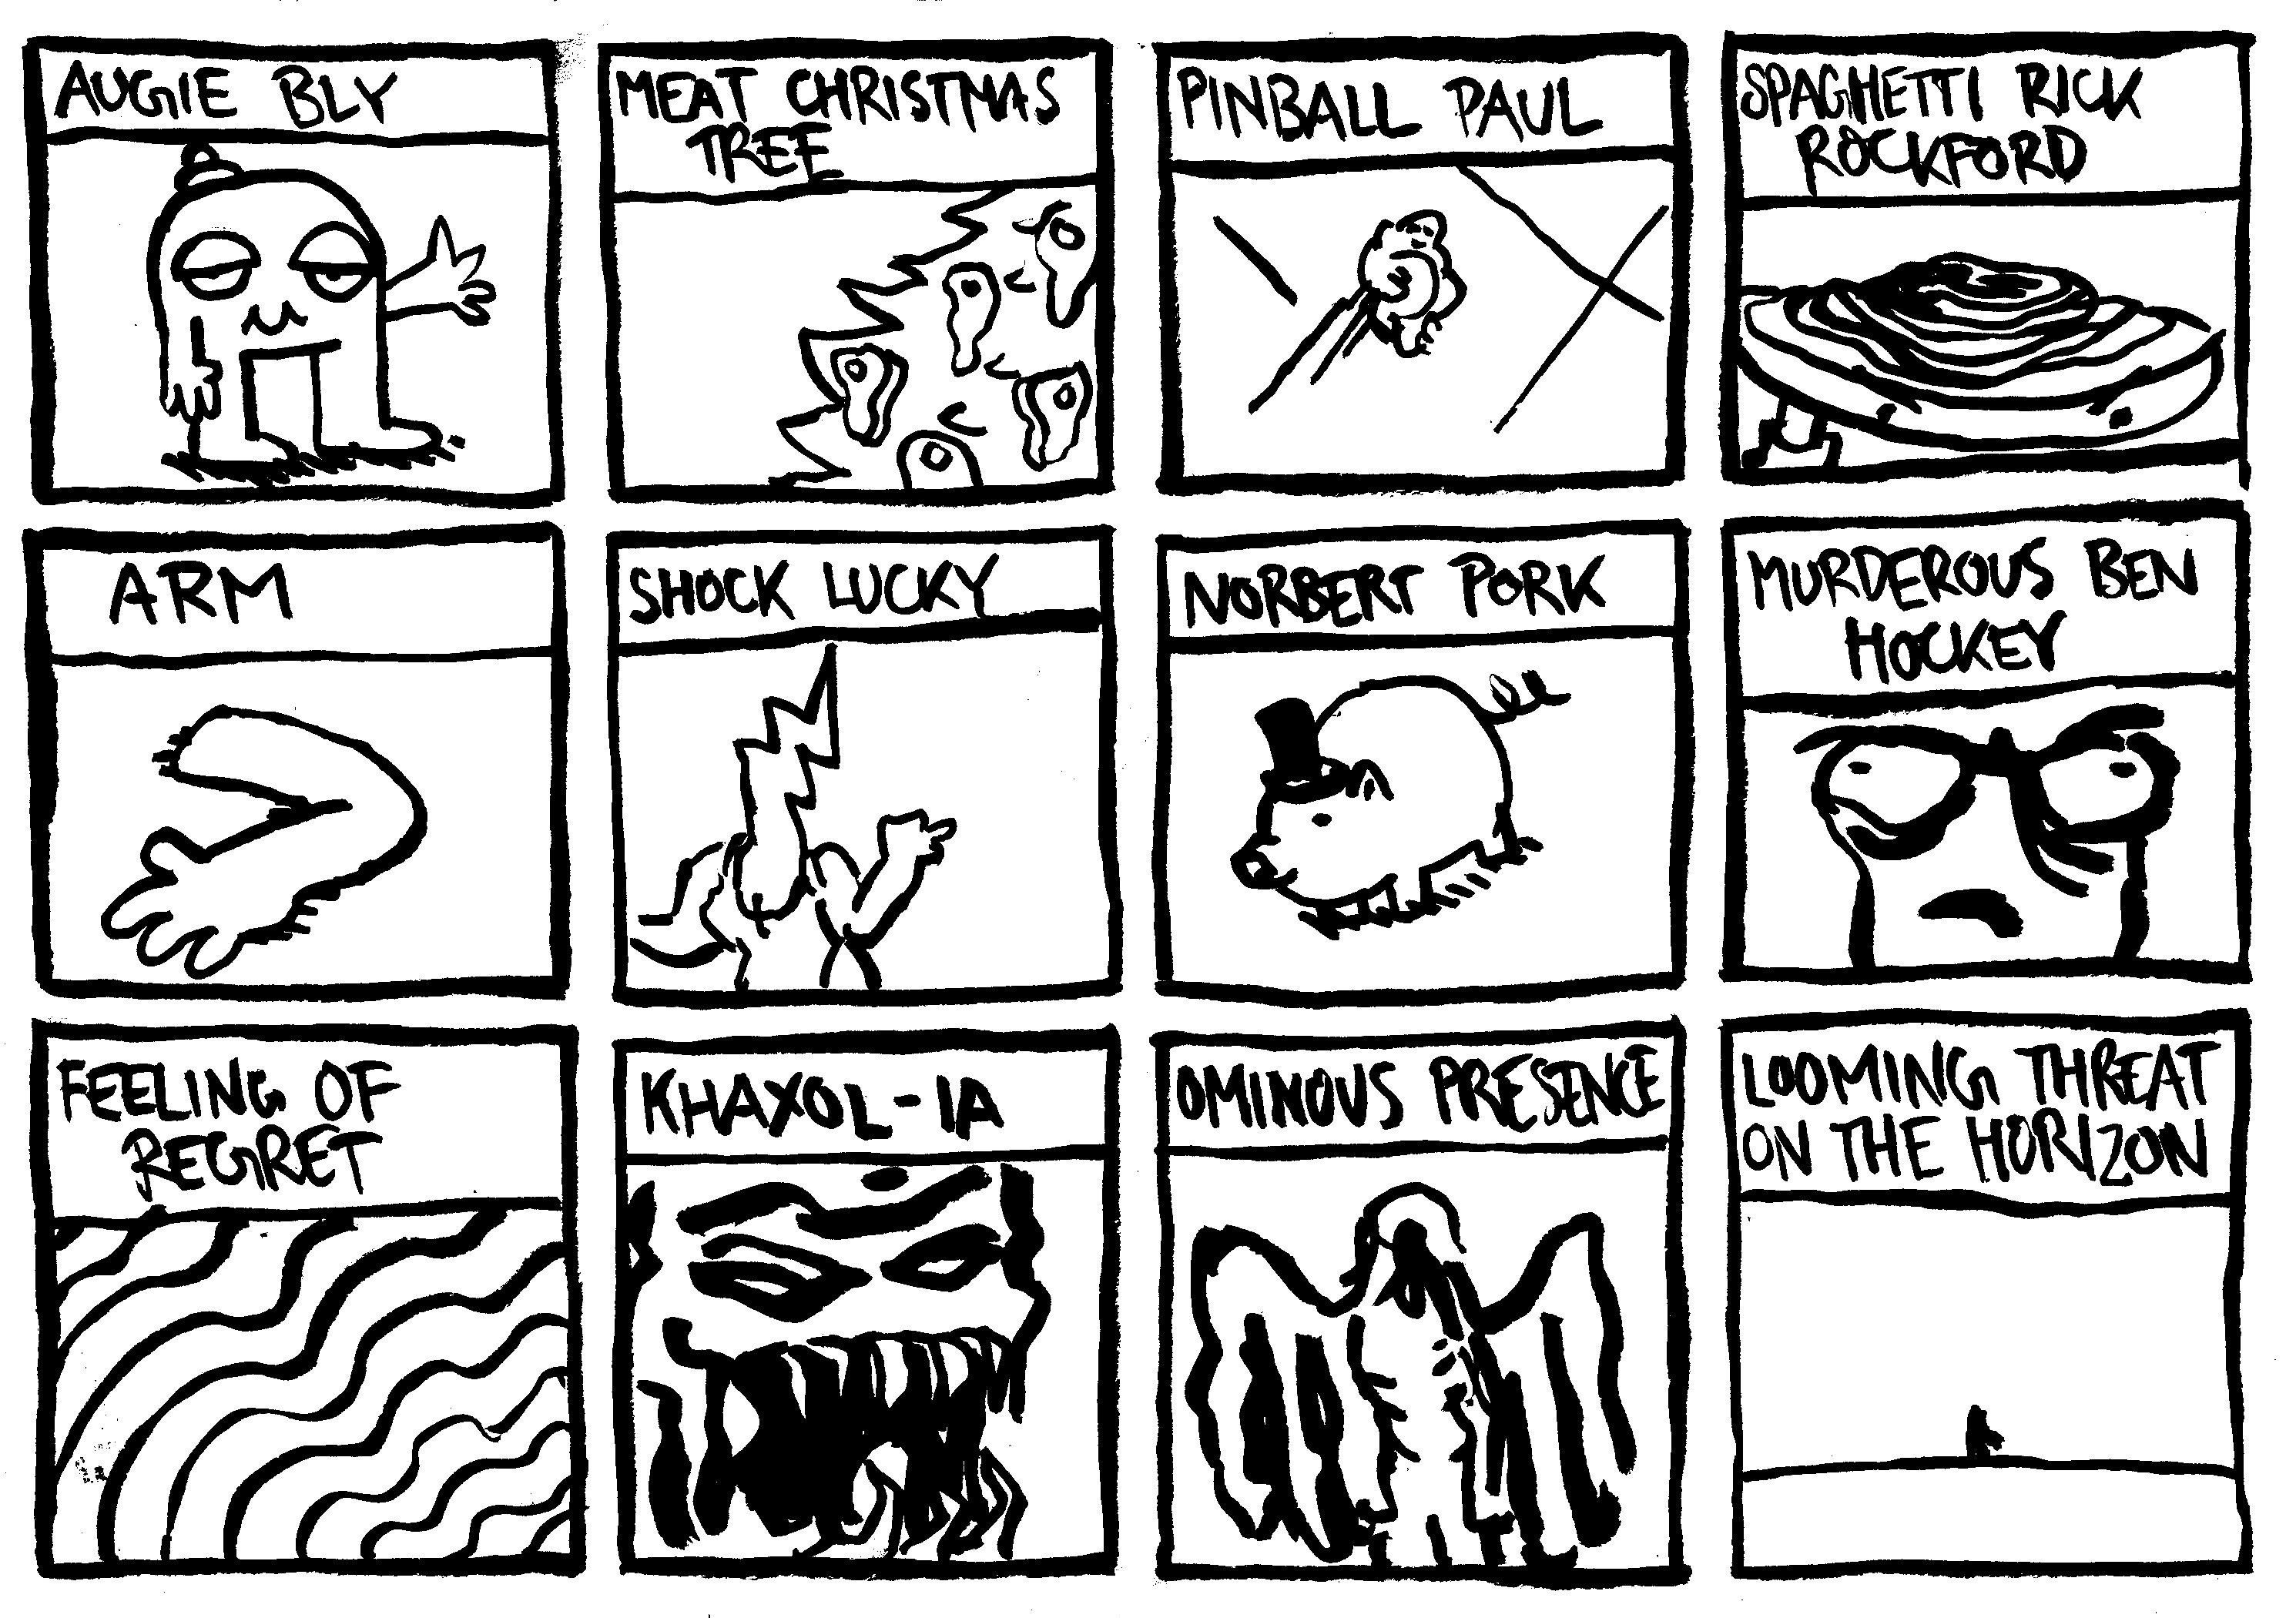 AUGIE BLY
MEAT CHRISTMAS
TREE
PINBALL PAUL
SPAGHETTI RICK
ROCKFORD
ARM
SHOCK LUCKY
NORBERT PORK
MURDEROUS BEN
HOCKEY
FEELING OF
REGRET
KHAXOL-IA
OMINOUS PRESENCE
LOOMING THREAT
ON THE HORIZON